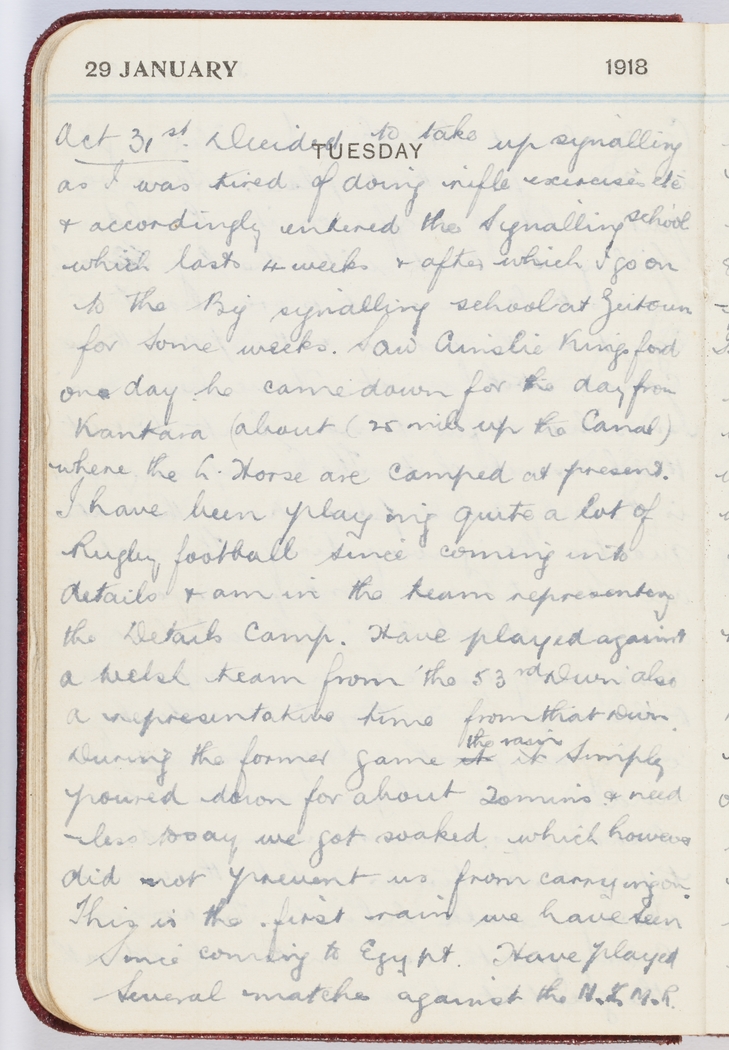 29 JANUARY 1918
TUESDAY
Oct 31st. Decided to take up signalling
as I was tired of doing rifle exercises etc
& accordingly entered the Signalling school
which lasts 4 weeks & after which I go on
to the Big signalling school at Zeitoun
for some weeks. Saw Ainslie Kingsford
one day he came down for the day from
Kantara (about (25 miles up the Canal)
where the L. Horse are camped at present.
I have been playing quite a lot of
Rugby football since coming into
details & am in the team representing
the Details Camp. Have played against
a Welsh team from the 53rd Divn also
a representative time from that Divn.
During the former game it the rain simply
poured down for about 20 mins & need
-less to say we got soaked which however
did not prevent us from carrying on.
This is the first rain we have seen
since coming to Egypt. Have played
several matches against the N.Z.M.R.